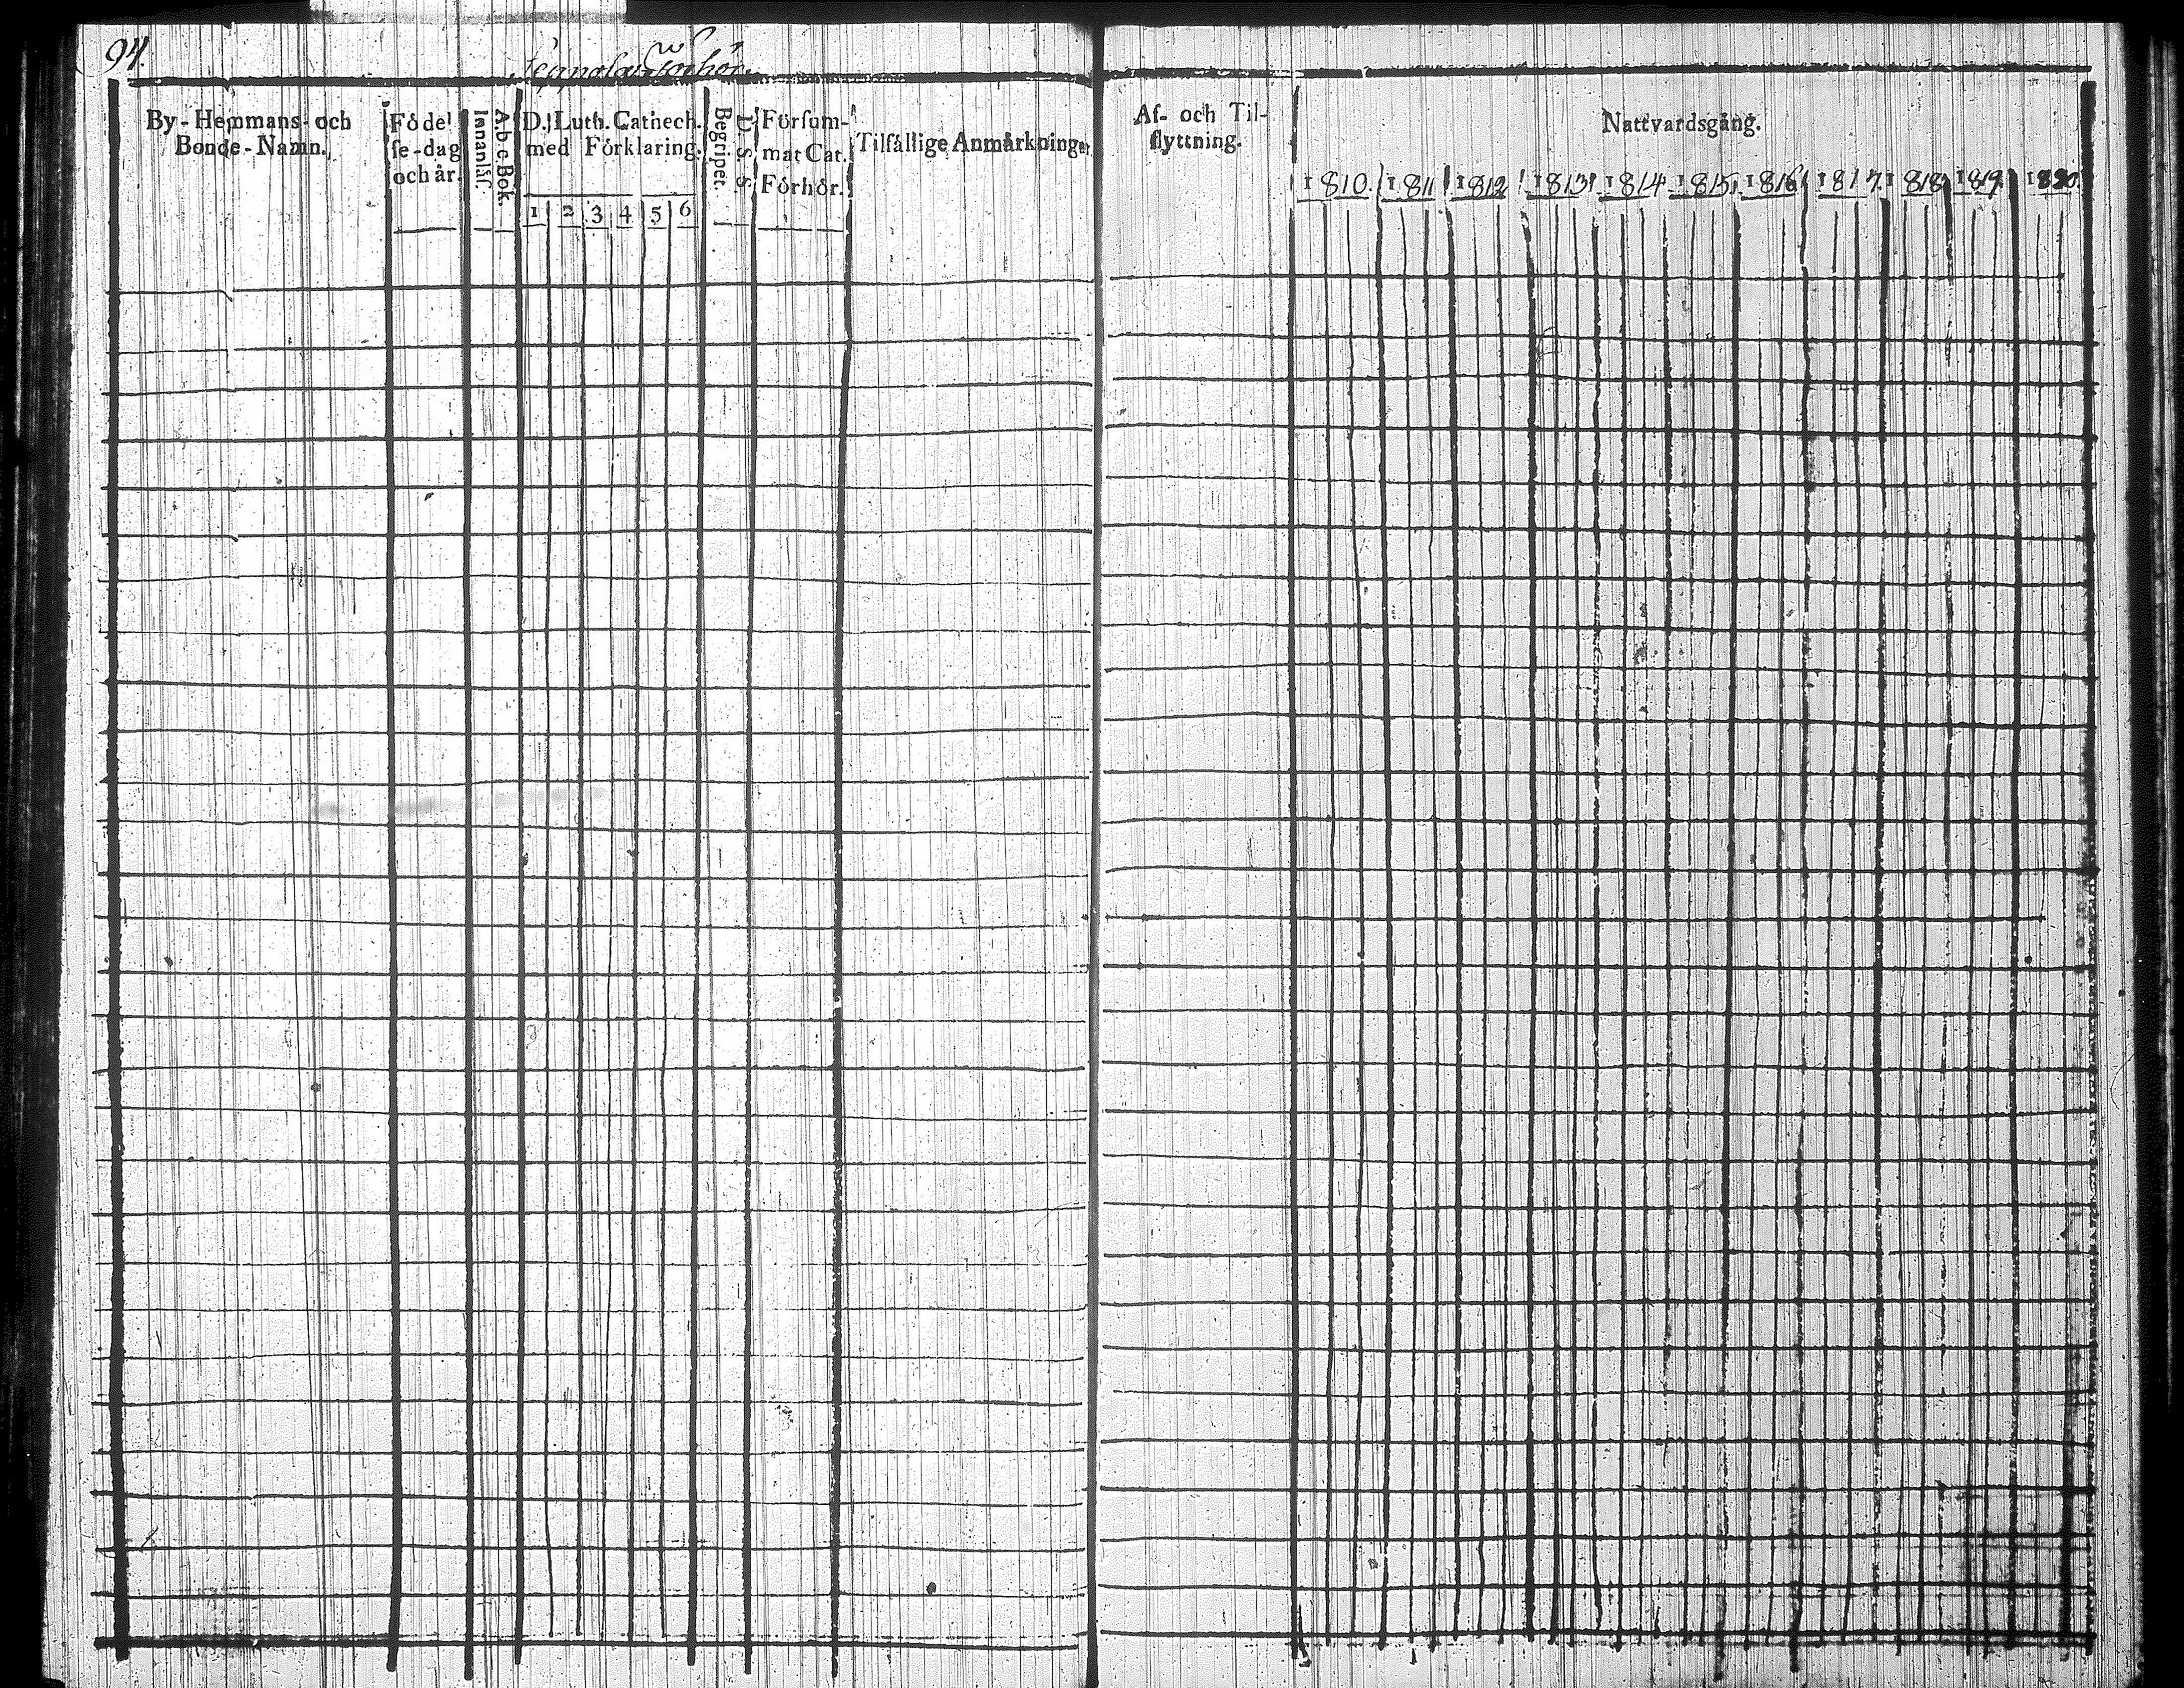 94.
By - Hemmans- och
Bonde - Namn.
Födel
se - dag
och år.
Innanläs.
A.b.c. Bok.
D. Luth. Cathech.
med Förklaring.
1 2 3 4 5 6
Begriper.
D. S. S.
Försum-
mat Cat.
Förhör.
Tilfällige Anmärkningar
Af- och Til-
flyttning.
Nattvardsgång.
1810. 1811 1812 1813 1814 1815 1816 1817. 1818 1819 1820.